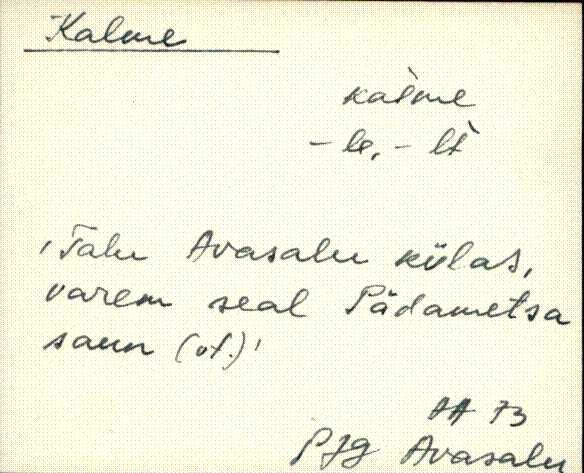 Kalme
kal̀me
-le, -lt̀
'Talu Avasalu külas,
varem seal Pädametsa
saun (vt.)'
AA 73
PJg Avasalu